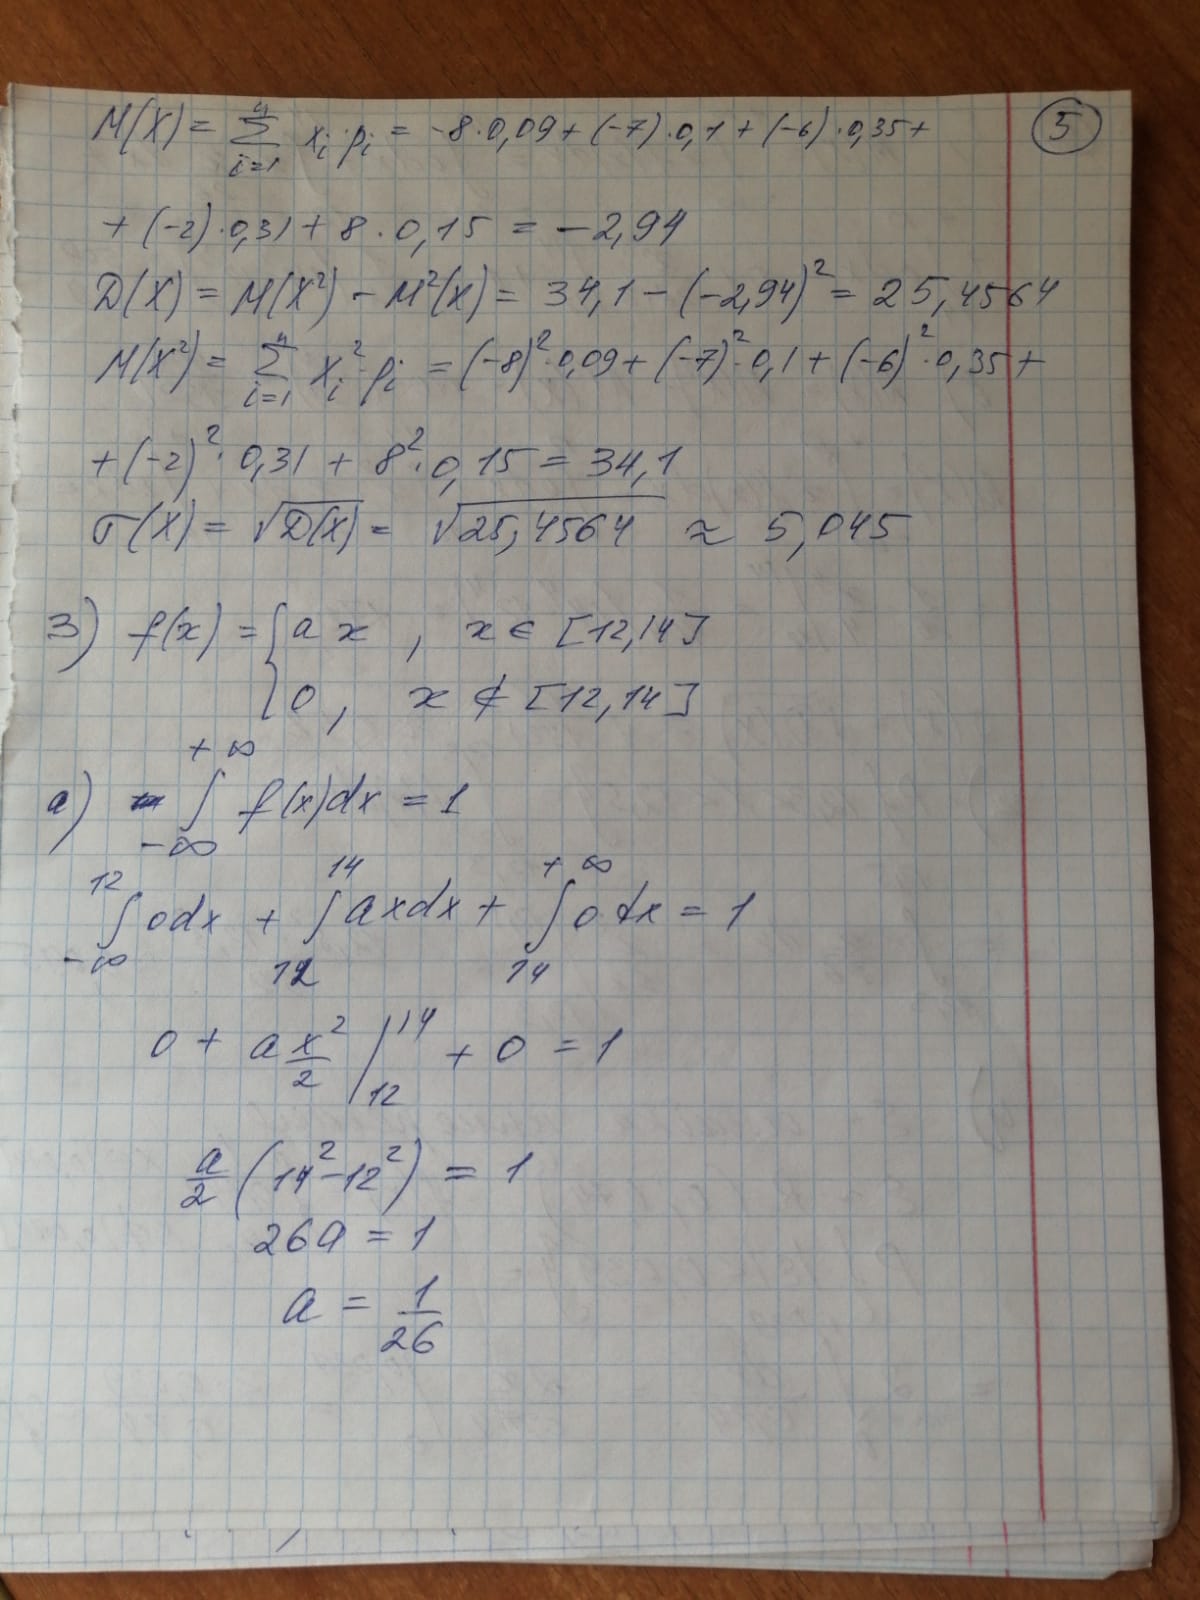 5
M(X) = ∑_{i=1}^{n} x_i · p_i = -8 · 0,09 + (-7) · 0,1 + (-6) · 0,35 +
+ (-2) · 0,31 + 8 · 0,15 = -2,94
D(X) = M(X²) - M²(X) = 34,1 - (-2,94)² = 25,4564
M(X²) = ∑_{i=1}^{n} x_i² · p_i = (-8)² · 0,09 + (-7)² · 0,1 + (-6)² · 0,35 +
+ (-2)² · 0,31 + 8² · 0,15 = 34,1
σ(X) = √D(X) = √25,4564 ≈ 5,045
3) f(x) = { ax , x ∈ [12,14]
0 , x ∉ [12,14]
a) ∫_{-∞}^{+∞} f(x)dx = 1
∫_{-∞}^{12} 0dx + ∫_{12}^{14} axdx + ∫_{14}^{+∞} 0dx = 1
0 + a x²/2 |_{12}^{14} + 0 = 1
a/2 (14² - 12²) = 1
26a = 1
a = 1/26